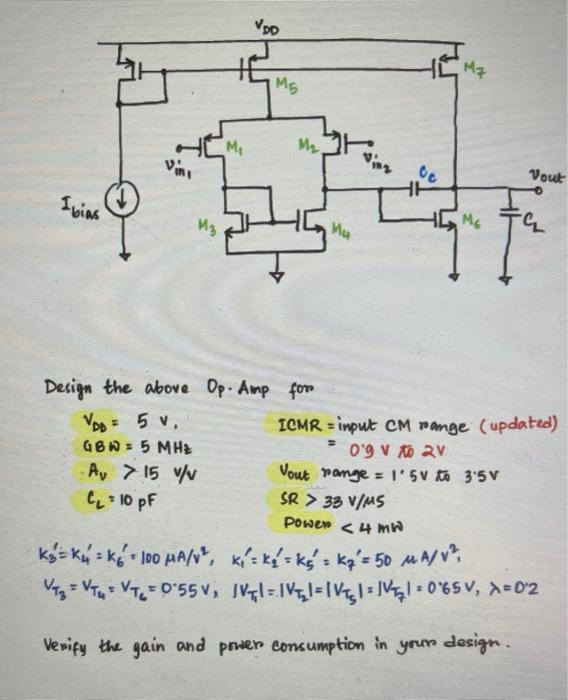 VDD
M5
M7
M1
M2
Vin1
Vin2
Cc
Vout
Ibias
M3
M4
M6
CL
Design the above Op. Amp for
VDD = 5 V,
GBW = 5 MHz
Av > 15 V/V
CL = 10 pF
ICMR = input CM range (updated)
= 0.9 V to 2V
Vout range = 1.5V to 3.5V
SR > 33 V/μS
Power < 4 mW
K3' = K4' = K6' = 100 μA/V², K1' = K2' = K5' = K7' = 50 μA/V²,
VT3 = VT4 = VT6 = 0.55V, |VT1| = |VT2| = |VT5| = |VT7| = 0.65V, λ=0.2
Verify the gain and power consumption in your design.